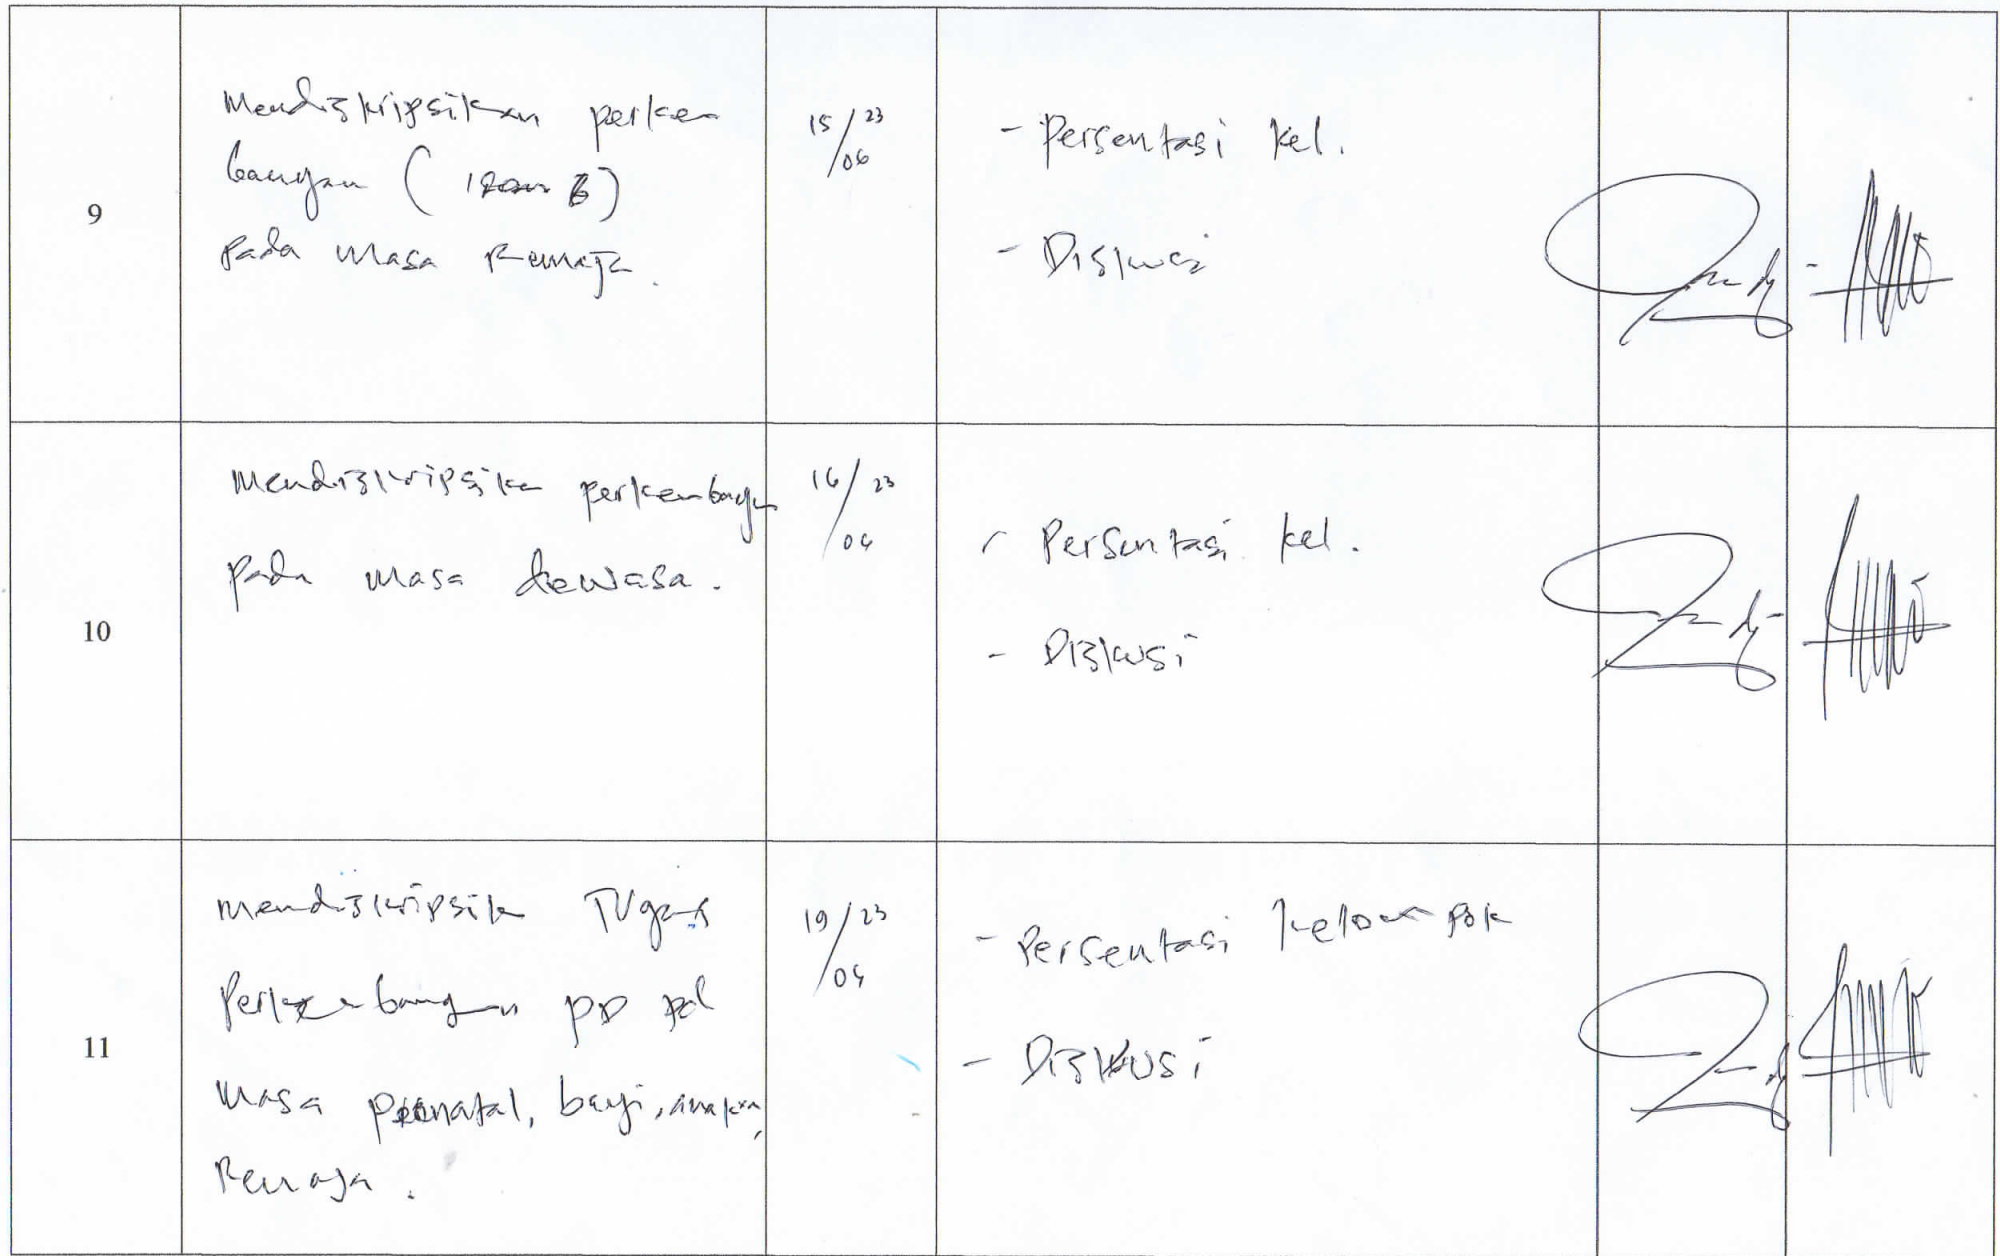 9
Mendiskripsikan perkem
bangan (
pada masa Remaja.
15/23
/06
- Persentasi kel.
- Diskusi
10
mendiskripsika perkembangan
pada masa dewasa.
16/23
/04
- Persentasi kel.
- Diskusi
11
mendiskripsik Tugas
Perkembangan PD pd
masa prenatal, bayi, anak,
Remaja.
19/23
/04
- Persentasi kelompok
- Diskusi